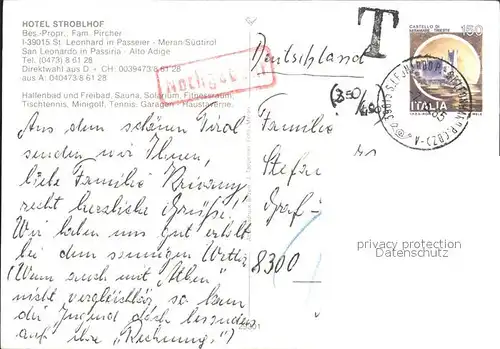 HOTEL STROBLHOF
Bes.-Propr.: Fam. Pircher
I-39015 St. Leonhard in Passeier - Meran-Südtirol
San Leonardo in Passiria - Alto Adige
Tel. (0473) 8 61 28
Direktwahl aus D. + CH 0039473/8 61 28
aus A: 040473/8 61 28
Hallenbad und Freibad, Sauna, Solarium, Fitnessraum,
Tischtennis, Minigolf, Tennis, Garagen, Haustaverne.
Aus dem schönen Tirol
senden wir Ihnen,
liebe Familie
recht herzliche Grüße!
Wir haben uns gut erholt
bei dem sonnigen Wetter
(Wenn auch mit „Athen"
nicht vergleichbar so kam
die Jugend doch besonders
auf ihre „Rechnung".)
T
Deutschland
Familie
Stefan
Graf-
8300
CASTELLO DI
MIRAMARE - TRIESTE
150
ITALIA
privacy protection
Datenschutz